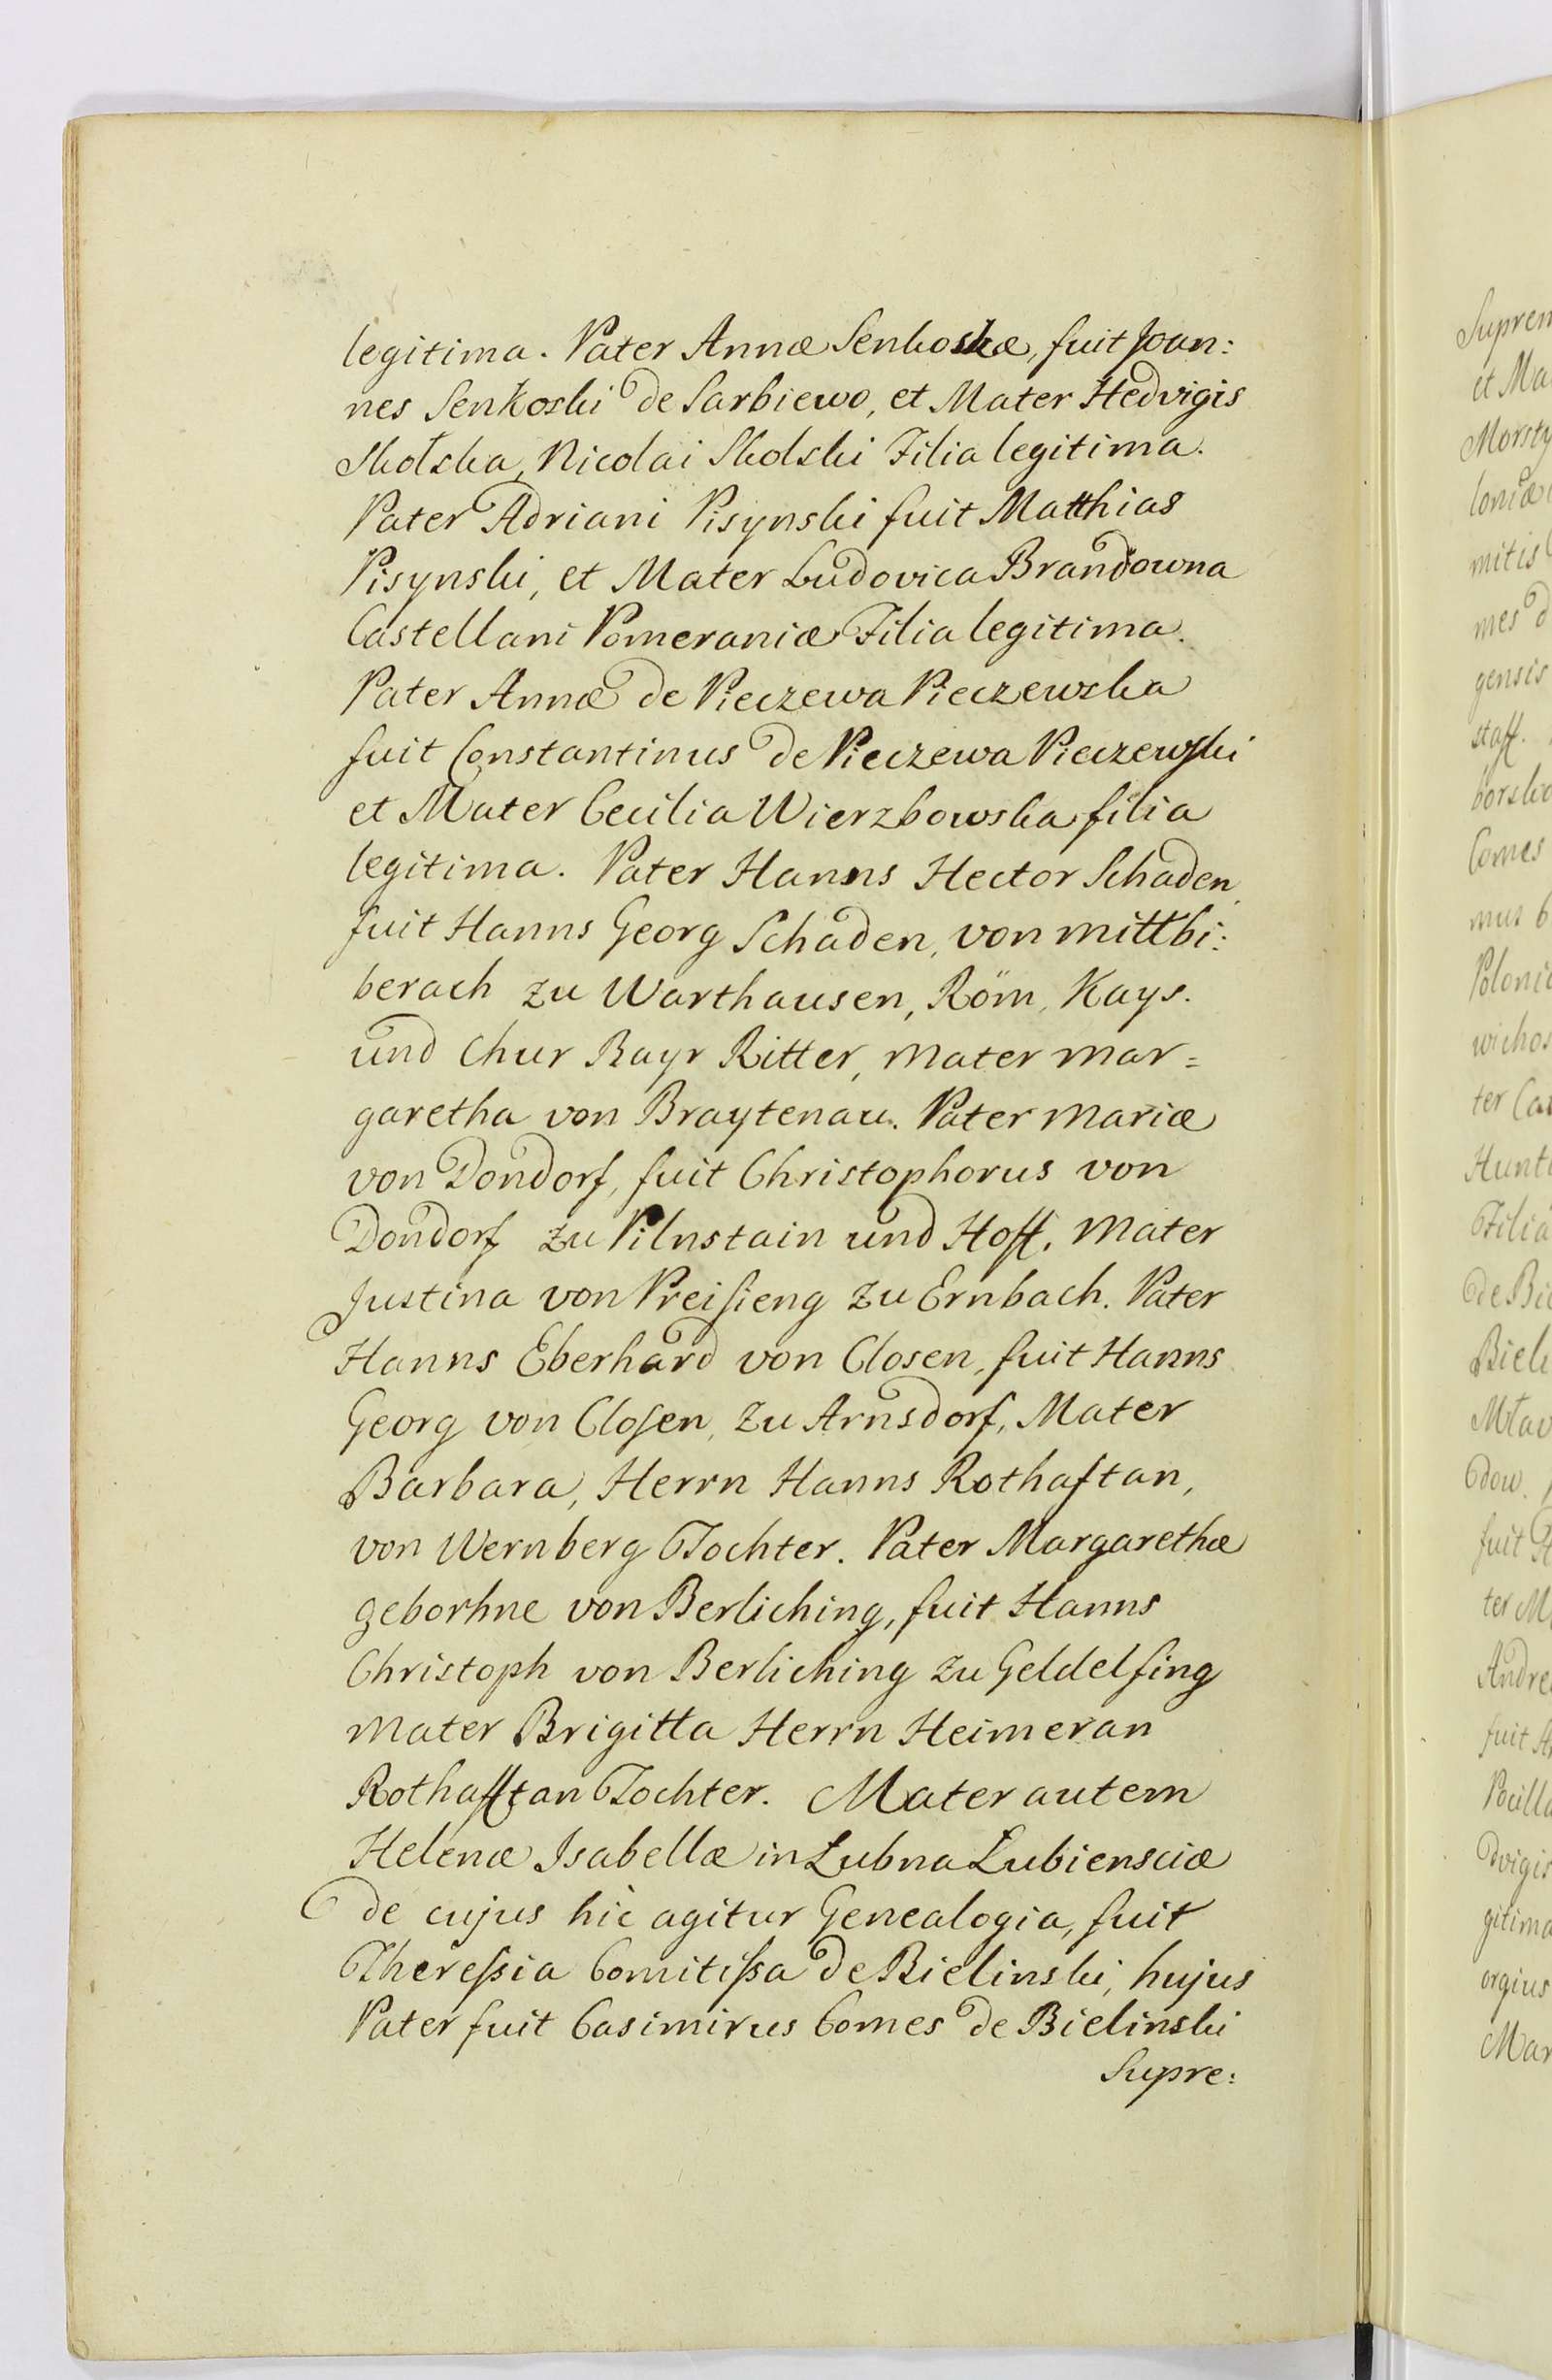 legitima. Pater Annæ Senkoskæ, fuit Joan:
nes Senkoski de Sarbiewo, et Mater Hedvigis
Skolska, Nicolai Skolski Filia legitima.
Pater Adriani Pisynski fuit Matthias
Pisynski, et Mater Ludovica Brandowna
Castellani Pomeraniæ Filia legitima.
Pater Annæ de Pieczewa Pieczewska
fuit Constantinus de Pieczewa Pieczewski
et Mater Cecilia Wierzbowska filia
legitima. Pater Hanns Hector Schaden,
fuit Hanns Georg Schaden, von mittbi:
berach zu Warthausen, Röm, Kays.
und Chur Bayr Ritter, Mater Mar=
garetha von Braytenau. Pater Mariæ
von Dondorf, fuit Christophorus von
Dondorf zu Pilnstain und Hoff. Mater
Justina von Preisieng zu Ernbach. Pater
Hanns Eberhard von Closen, fuit Hanns
Georg von Closen, zu Arnsdorf, Mater
Barbara, Herrn Hanns Rothaftan,
von Wernberg Tochter. Pater Margarethæ
geborhne von Berliching, fuit Hanns
Christoph von Berliching zu Geldelfing
Mater Brigitta Herrn Heimeran
Rothafftan Tochter. Mater autem
Helenæ Isabellæ in Łubna Łubiensciæ
de cujus hic agitur Genealogia, fuit
Theressia Comitissa de Bielinski, hujus
Pater fuit Casimirus Comes de Bielinski
Supre:
Suprem
et Ma
Morsty
loniæ
mitis
mes d
gensis
staff.
borsko
Comes
mus
Poloni
wichos
ter Ca
Hunt
Filia
de Bi
Biel
Mław
dow.
fuit
ter M
Andre
fuit
Pocill
dvigis
gitima
orgius
Mar